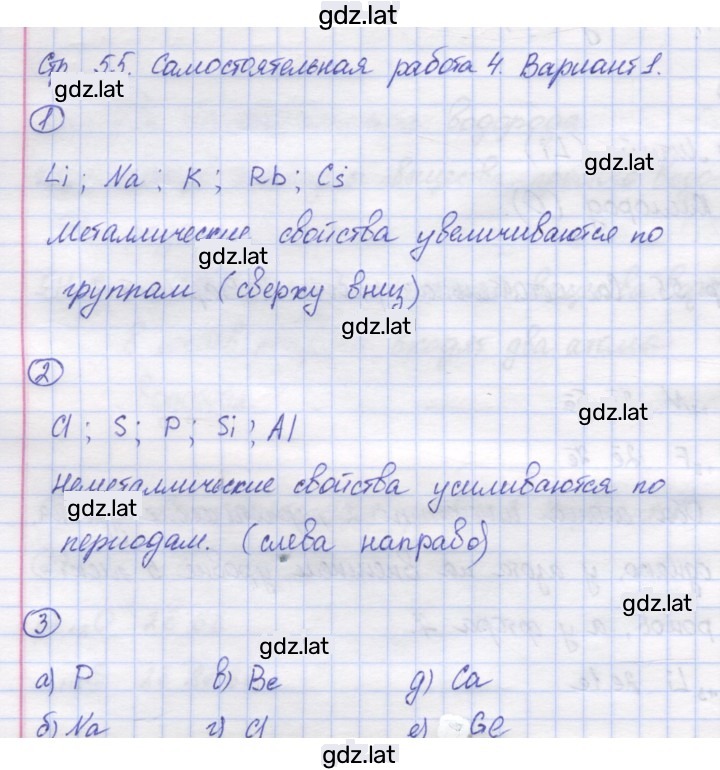 gdz.lat
Стр. 55. Самостоятельная работа 4. Вариант 1.
gdz.lat
1
gdz.lat
Li; Na; K; Rb; Cs
Металлические свойства увеличиваются по
gdz.lat
группам (сверху вниз)
gdz.lat
2
gdz.lat
Cl; S; P; Si; Al
Неметаллические свойства усиливаются по
gdz.lat
периодам. (слева направо)
gdz.lat
3
gdz.lat
а) P в) Be д) Ca
б) Na г) Cl е) Ge
gdz.lat